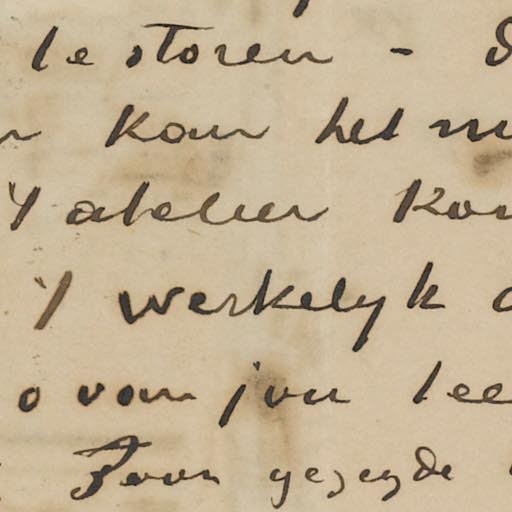 te storen -
kan het
't atelier
't werkelyk
van jou
Zoon gezegde